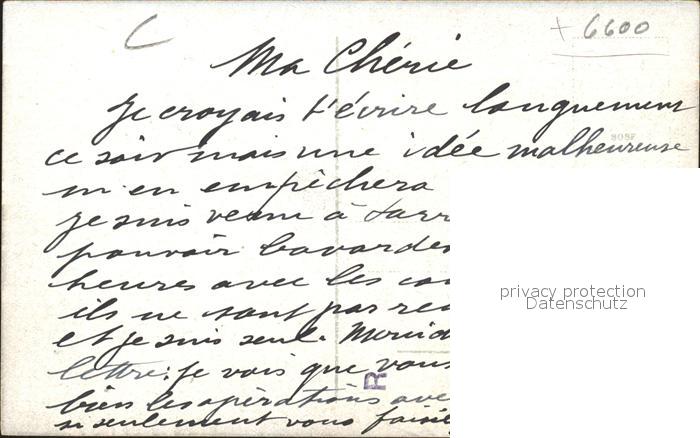 C
+ 6600
Ma Chérie
Je croyais t'écrire longuement
ce soir mais une idée malheureuse
m'en empêchera
je suis venu à
pouvoir bavarder
heures avec les
ils ne sont pas
et je suis seul.
lettre. je vois que vous
bien les opérations avec
si seulement vous
R
privacy protection
Datenschutz